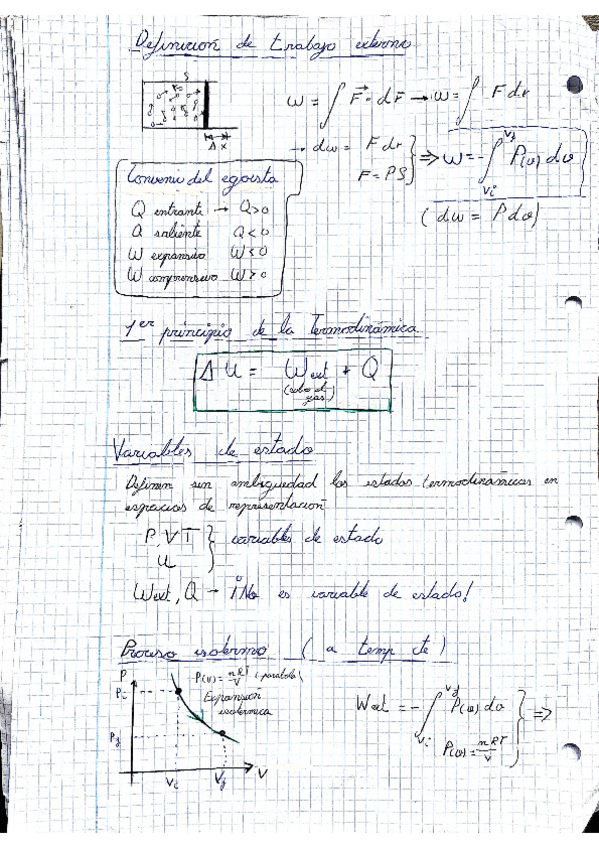 Definición de trabajo externo
S
Δ x
W = ∫ F⃗ · d r⃗ → W = ∫ F dr
→ dW = F dr
F = PS } ⇒ W = - ∫ Vi Vf P(v) dv
( dW = P dv )
Convenio del egoísta
Q entrante → Q > 0
Q saliente Q < 0
W expansivo W < 0
W compresivo W > 0
1er principio de la Termodinámica
Δ U = Wext + Q
(sobre el
gas)
Variables de estado
Definen sin ambigüedad los estados termodinámicos en
espacios de representación
P, V, T
U } variables de estado
Wext, Q → ¡No es variable de estado!
Proceso isotermo ( a temp cte )
P
Pi
Pf
Vi Vf V
P(v) = nRT/V (parabola)
Expansión
isotérmica
Wext = - ∫ Vi Vf P(v) dv
P(v) = nRT/V } ⇒